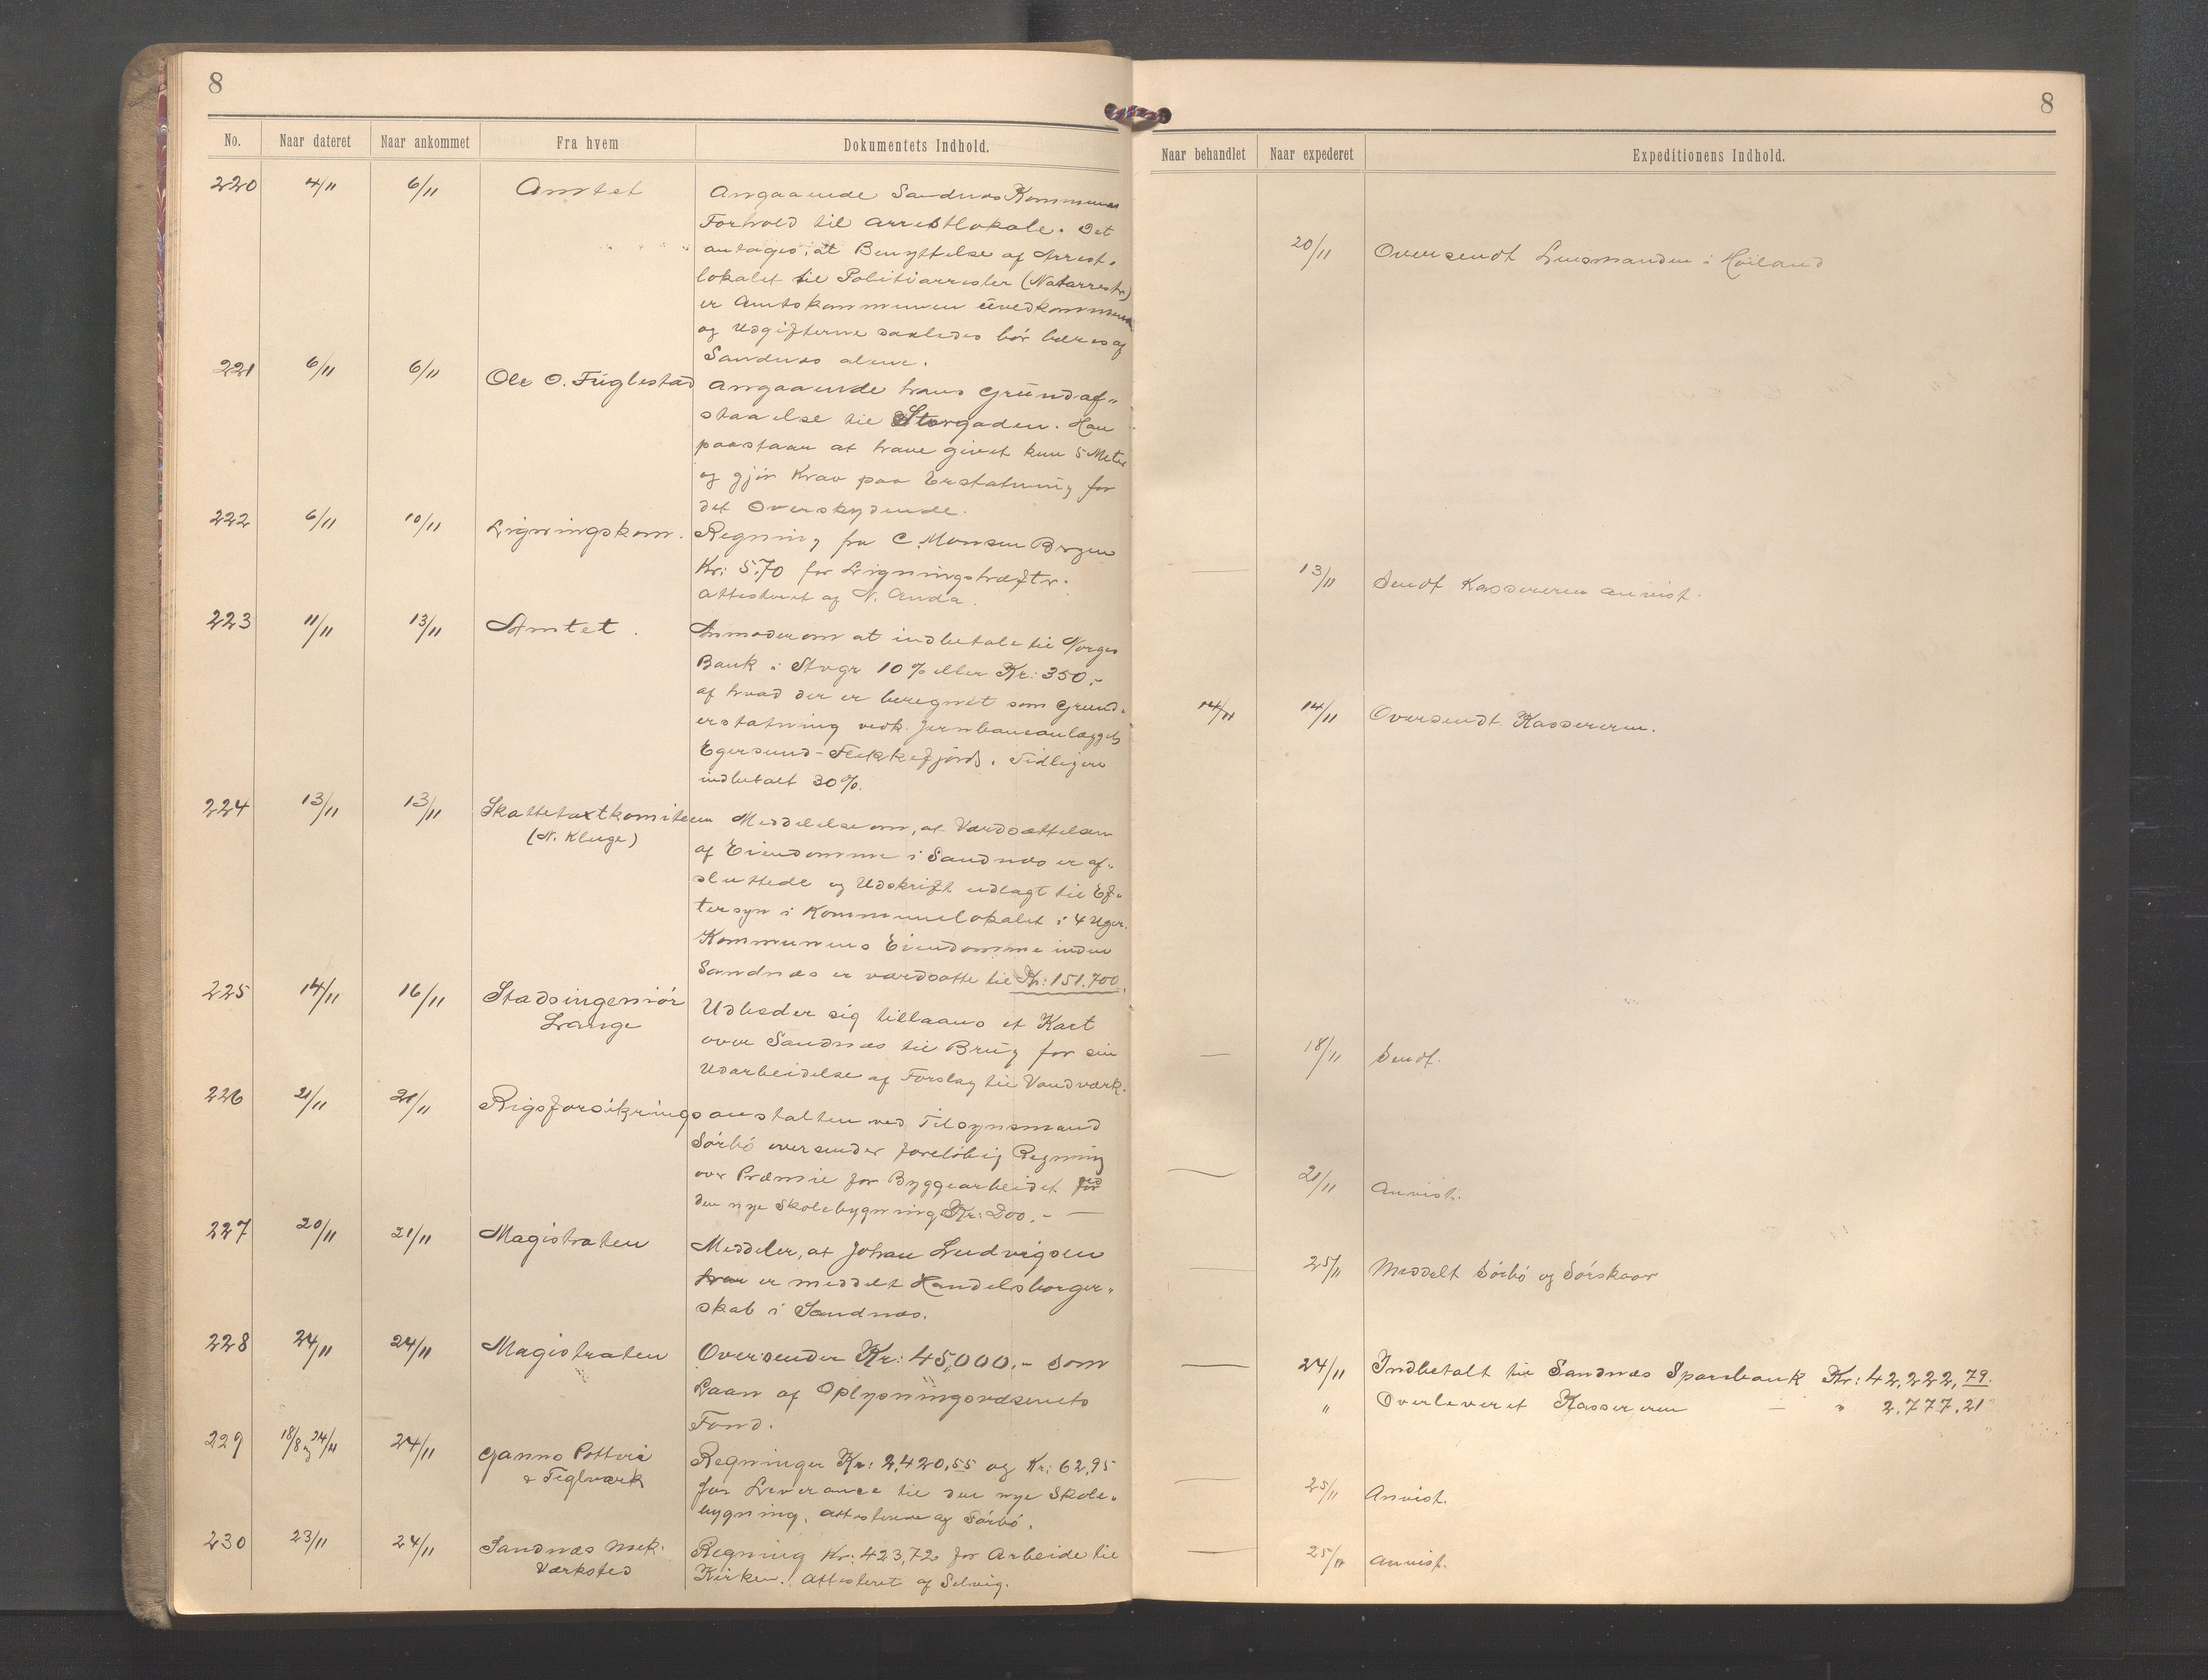 8
No. Naar dateret Naar ankommet Fra hvem Dokumentets Indhold.
220 4/11 6/11 Amtet Angaaende Sandnæs Kommunes
Forhold til Arrestlokale. Det
antages, at Benyttelse af Arrest-
lokalet til Politiarrester (Natarrester)
er Amtskommunen uvedkommende
og Udgifterne saaledes bør bæres af
Sandnæs alene.
221 6/11 6/11 Ole O. Fuglestad Angaaende hans Grundaf-
staaelse til Storgaden. Han
paastaar at have givet kun 5 Meter
og gjør Krav paa Erstatning for
det Overskydende.
222 6/11 10/11 Ligningskom. Regning fra C. Monsen Bryne
Kr: 5,70 for Ligningshæfter.
Attesteret af N. Anda.
223 11/11 13/11 Amtet. Anmoder om at indbetale til Norges
Bank i Stvgr 10% eller Kr: 350,-
af hvad der er beregnet som Grund-
erstatning vedk. Jernbaneanlægget
Egersund-Flekkefjord. Tidligere
indbetalt 30%.
224 13/11 13/11 Skattetaxtkomiteen Meddelelse om, at Værdsættelsen
(N. Kluge)
af Eiendomme i Sandnæs er af-
sluttede og Udskrift udlagt til Ef-
tersyn i Kommunelokalet i 4 Uger.
Kommunens Eiendomme inden
Sandnæs er værdsatte til Kr: 151.700.
225 14/11 16/11 Stadsingeniør
Lange
Udbeder sig tillaans et Kart
over Sandnæs til Brug for sin
Udarbeidelse af Forslag til Vandværk.
226 21/11 21/11 Rigsforsikringsanstalten ved Tilsynsmand
Sørbø oversender foreløbig Regning
over Præmie for Byggearbeidet ved
den nye Skolebygning Kr: 200.-
227 20/11 21/11 Magistraten Meddeler, at Johan Ludvigsen
har er meddelt Handelsborger-
skab i Sandnæs.
228 24/11 24/11 Magistraten Oversender Kr: 45,000.- som
Laan af Oplysningsvæsenets
Fond.
229 18/8 og 24/11 24/11 Ganns Potteri
& Teglværk
Regninger Kr: 2,420,55 og Kr: 62,95
for Leverance til den nye Skole-
bygning. Attesteret af Sørbø.
230 23/11 24/11 Sandnæs mek.
Værksted
Regning Kr: 423,72 for Arbeide til
Kirken. Attesteret af Selvig.
8
Naar behandlet Naar expederet Expeditionens Indhold.
20/11 Oversendt Lensmanden i Høiland
— 13/11 Sendt Kassereren anvist.
14/11 14/11 Oversendt Kassereren.
— 18/11 Sendt.
— 21/11 Anvist.
— 25/11 Meddelt Sørbø og Sørskaar
— 24/11 Indbetalt til Sandnæs Sparebank Kr: 42,222,79.
" Overleveret Kassereren — " 2,777,21
— 25/11 Anvist.
— 25/11 Anvist.